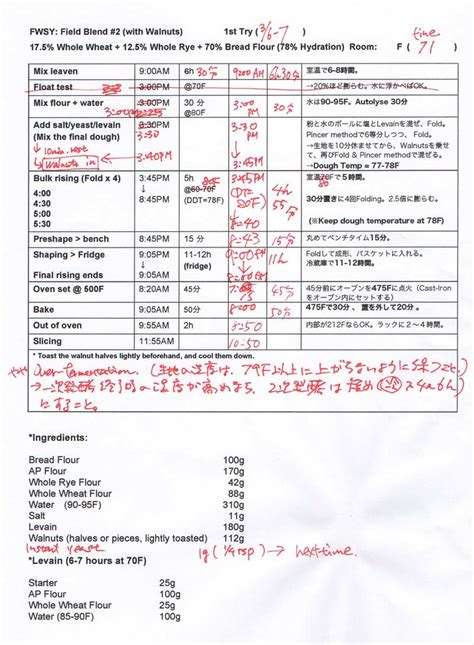 FWSY: Field Blend #2 (with Walnuts) 1st Try ( 3/6-7 ) fine
17.5% Whole Wheat + 12.5% Whole Rye + 70% Bread Flour (78% Hydration) Room: F ( 71 )
Mix leaven 9:00AM 6h 30分 9:00 AM 6h30分 室温で6-8時間。
Float test 3:00PM @70F →20%ほど膨らむ。水に浮かべばOK。
Mix flour + water 3:00PM 30 分 @80F 3:00 PM 30分 水は90-95F. Autolyse 30分
Add salt/yeast/levain (Mix the final dough) 3:30 3:30 PM 粉と水のボールに塩とLevainを混ぜ、Fold。
Pincer methodで6等分しつつ、Fold。
10min. rest
Walnuts in → 3:40PM 3:45PM →生地を10分休ませてから、Walnutsを乗せて、再びFold & Pincer methodで混ぜる。
→Dough Temp = 77-78F
Bulk rising (Fold x 4) 3:45PM 5h 80F 3:45PM 4h 55分 室温70Fで5時間。
80
4:00 ↓ @60-70F (DDT= 80F)
4:30 8:45PM (DDT=78F) 30分置きに4回Folding. 2.5倍に膨らむ。
5:00
5:30 8:40 (※Keep dough temperature at 78F)
Preshape > bench 8:45PM 15 分 8:43 15分 丸めてベンチタイム15分。
Shaping > Fridge 9:05PM 11-12h (fridge) 9:00PM 11h Foldして成形、バスケットに入れる。
冷蔵庫で11-12時間。
Final rising ends 9:05AM 8:00AM
Oven set @ 500F 8:20AM 45分 7:15 45分 45分前にオーブンを475Fに点火 (Cast-Ironをオーブン内にセットする)
Bake 9:05AM 50分 8:00 50分 475Fで30分 、蓋を外して20分。
Out of oven 9:55AM 8:50 内部が212FならOK。ラックに2~4時間。
Slicing 11:55AM 10:50
* Toast the walnut halves lightly beforehand, and cool them down.
Over-fermentation. (生地の温度は、79F以上に上がらないように保つこと。)
→一次発酵終了時の温度が高めなら、2次発酵は短め
にすること。
*Ingredients:
Bread Flour 100g
AP Flour 170g
Whole Rye Flour 42g
Whole Wheat Flour 88g
Water (90-95F) 310g
Salt 11g
Levain 180g
Walnuts (halves or pieces, lightly toasted) 112g
Instant yeast 1g (1/4 tsp) → next time.
*Levain (6-7 hours at 70F)
Starter 25g
AP Flour 100g
Whole Wheat Flour 25g
Water (85-90F) 100g